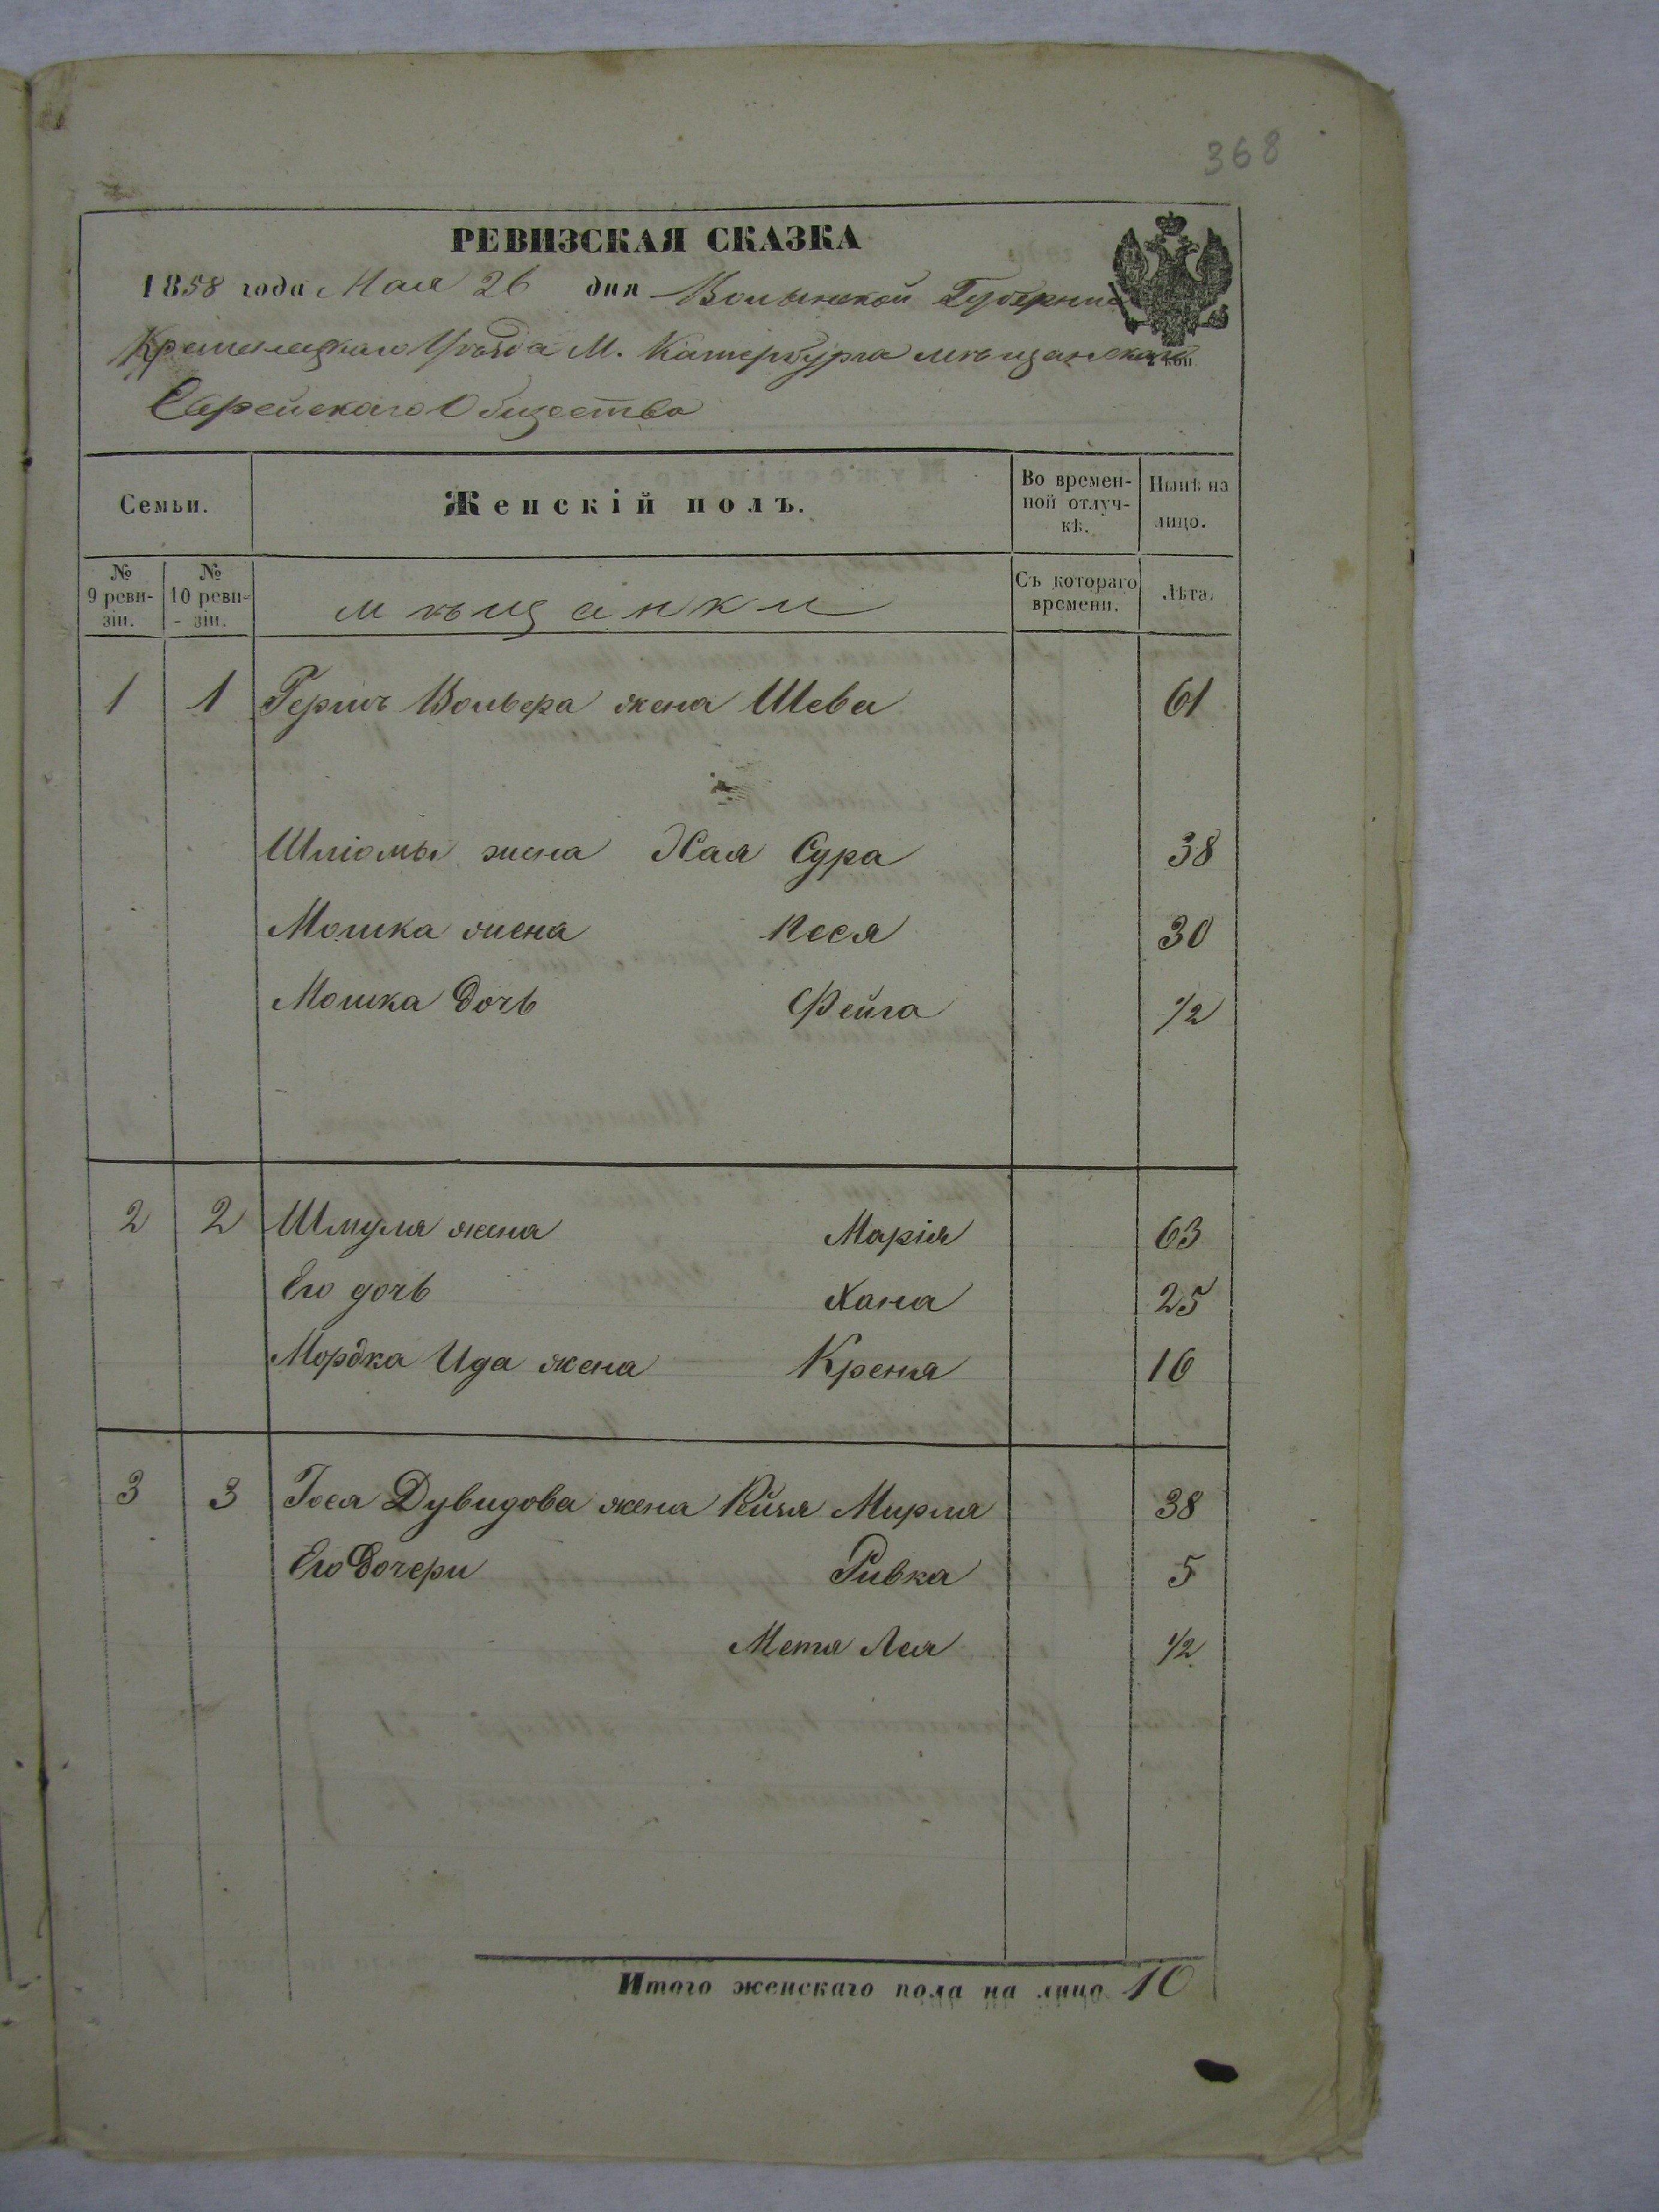 368
РЕВИЗСКАЯ СКАЗКА
1858 года Мая 26 дня Волынской Губернии
Кременецкаго Уѣзда М. Катербурга мѣщанскаго
коп.
Еврейскаго Общества
Семьи. Женскій полъ. Во времен-ной отлуч-кѣ. Нынѣ на лицо.
№ 9 реви-зіи. № 10 реви-зіи. мѣщанки Съ котораго времени. Лѣта.
1 1 Гершъ Вольвера жена Шева 61
Шліомы жена Хая Сура 38
Мошка жена Песя 30
Мошка дочь Фейга 1/2
2 2 Шмуля жена Марія 63
Его дочь Хана 25
Мордка Ида жена Креня 16
3 3 Іося Дувидова жена Мирля 38
Его дочери Ривка 5
Метя Лея 1/2
Итого женскаго пола на лицо 10